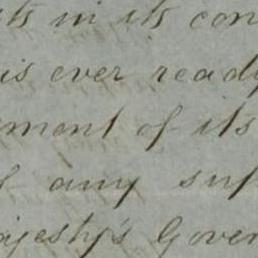 its in its con
is ever ready
ment of its
of any sup
ajesty's Govern